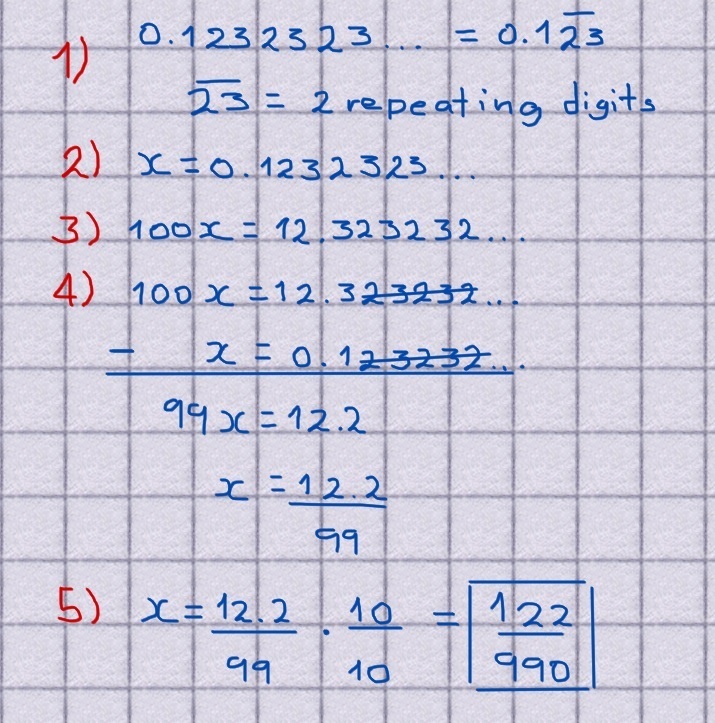 1) 0.1232323... = 0.1\overline{23}
\overline{23} = 2 repeating digits
2) x = 0.1232323...
3) 100x = 12.323232...
4) 100x = 12.323232...
- x = 0.123232...
99x = 12.2
x = 12.2/99
5) x = 12.2/99 · 10/10 = 122/990